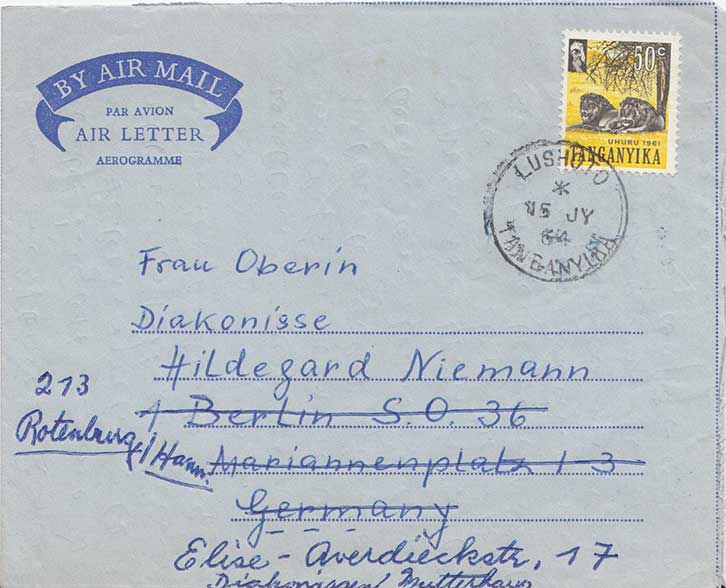 BY AIR MAIL
PAR AVION
AIR LETTER
AEROGRAMME
50c
UHURU 1961
TANGANYIKA
LUSHOTO
*
15 JY
64
TANGANYIKA
Frau Oberin
Diakonisse
Hildegard Niemann
1 Berlin S.O. 36
Mariannenplatz 1-3
Germany
213
Rotenburg/Hann.
Elise-Averdieckstr, 17
Diakonissen Mutterhaus